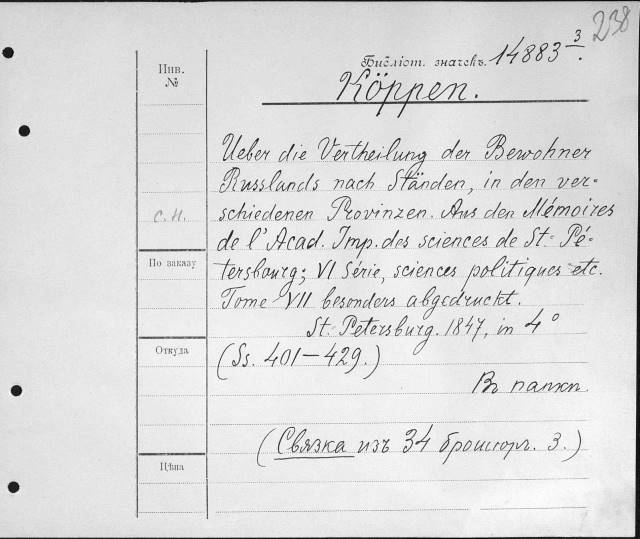 238
Инв.
№
Библіот. значекъ. 14883 3/.
Köppen.
Ueber die Vertheilung der Bewohner
Russlands nach Ständen, in den ver-
с. н.
schiedenen Provinzen. Aus den Mémoires
de l'Acad. Imp. des sciences de St.- Pé-
По заказу
tersbourg; VI Série, sciences politiques etc.
Tome VII besonders abgedruckt.
St.- Petersburg. 1847, in 4°
Откуда
(Ss. 401–429.)
Въ папкѣ.
(Связка изъ 34 брошюръ. 3.)
Цѣна